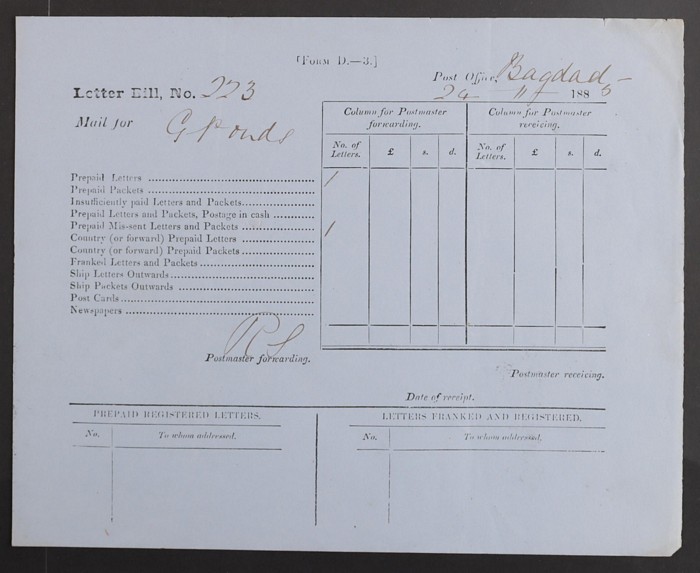 [Form D.—3.]
Post Office, Bagdad
Letter Bill, No. 223
24 11 188
Mail for G Ponds
Column for Postmaster forwarding.
Column for Postmaster receiving.
No. of Letters. £ s. d. No. of Letters. £ s. d.
Prepaid Letters /
Prepaid Packets
Insufficiently paid Letters and Packets
Prepaid Letters and Packets, Postage in cash
Prepaid Mis-sent Letters and Packets /
Country (or forward) Prepaid Letters
Country (or forward) Prepaid Packets
Franked Letters and Packets
Ship Letters Outwards
Ship Packets Outwards
Post Cards
Newspapers
Postmaster forwarding.
Postmaster receiving.
Date of receipt.
PREPAID REGISTERED LETTERS.
LETTERS FRANKED AND REGISTERED.
No. To whom addressed. No. To whom addressed.